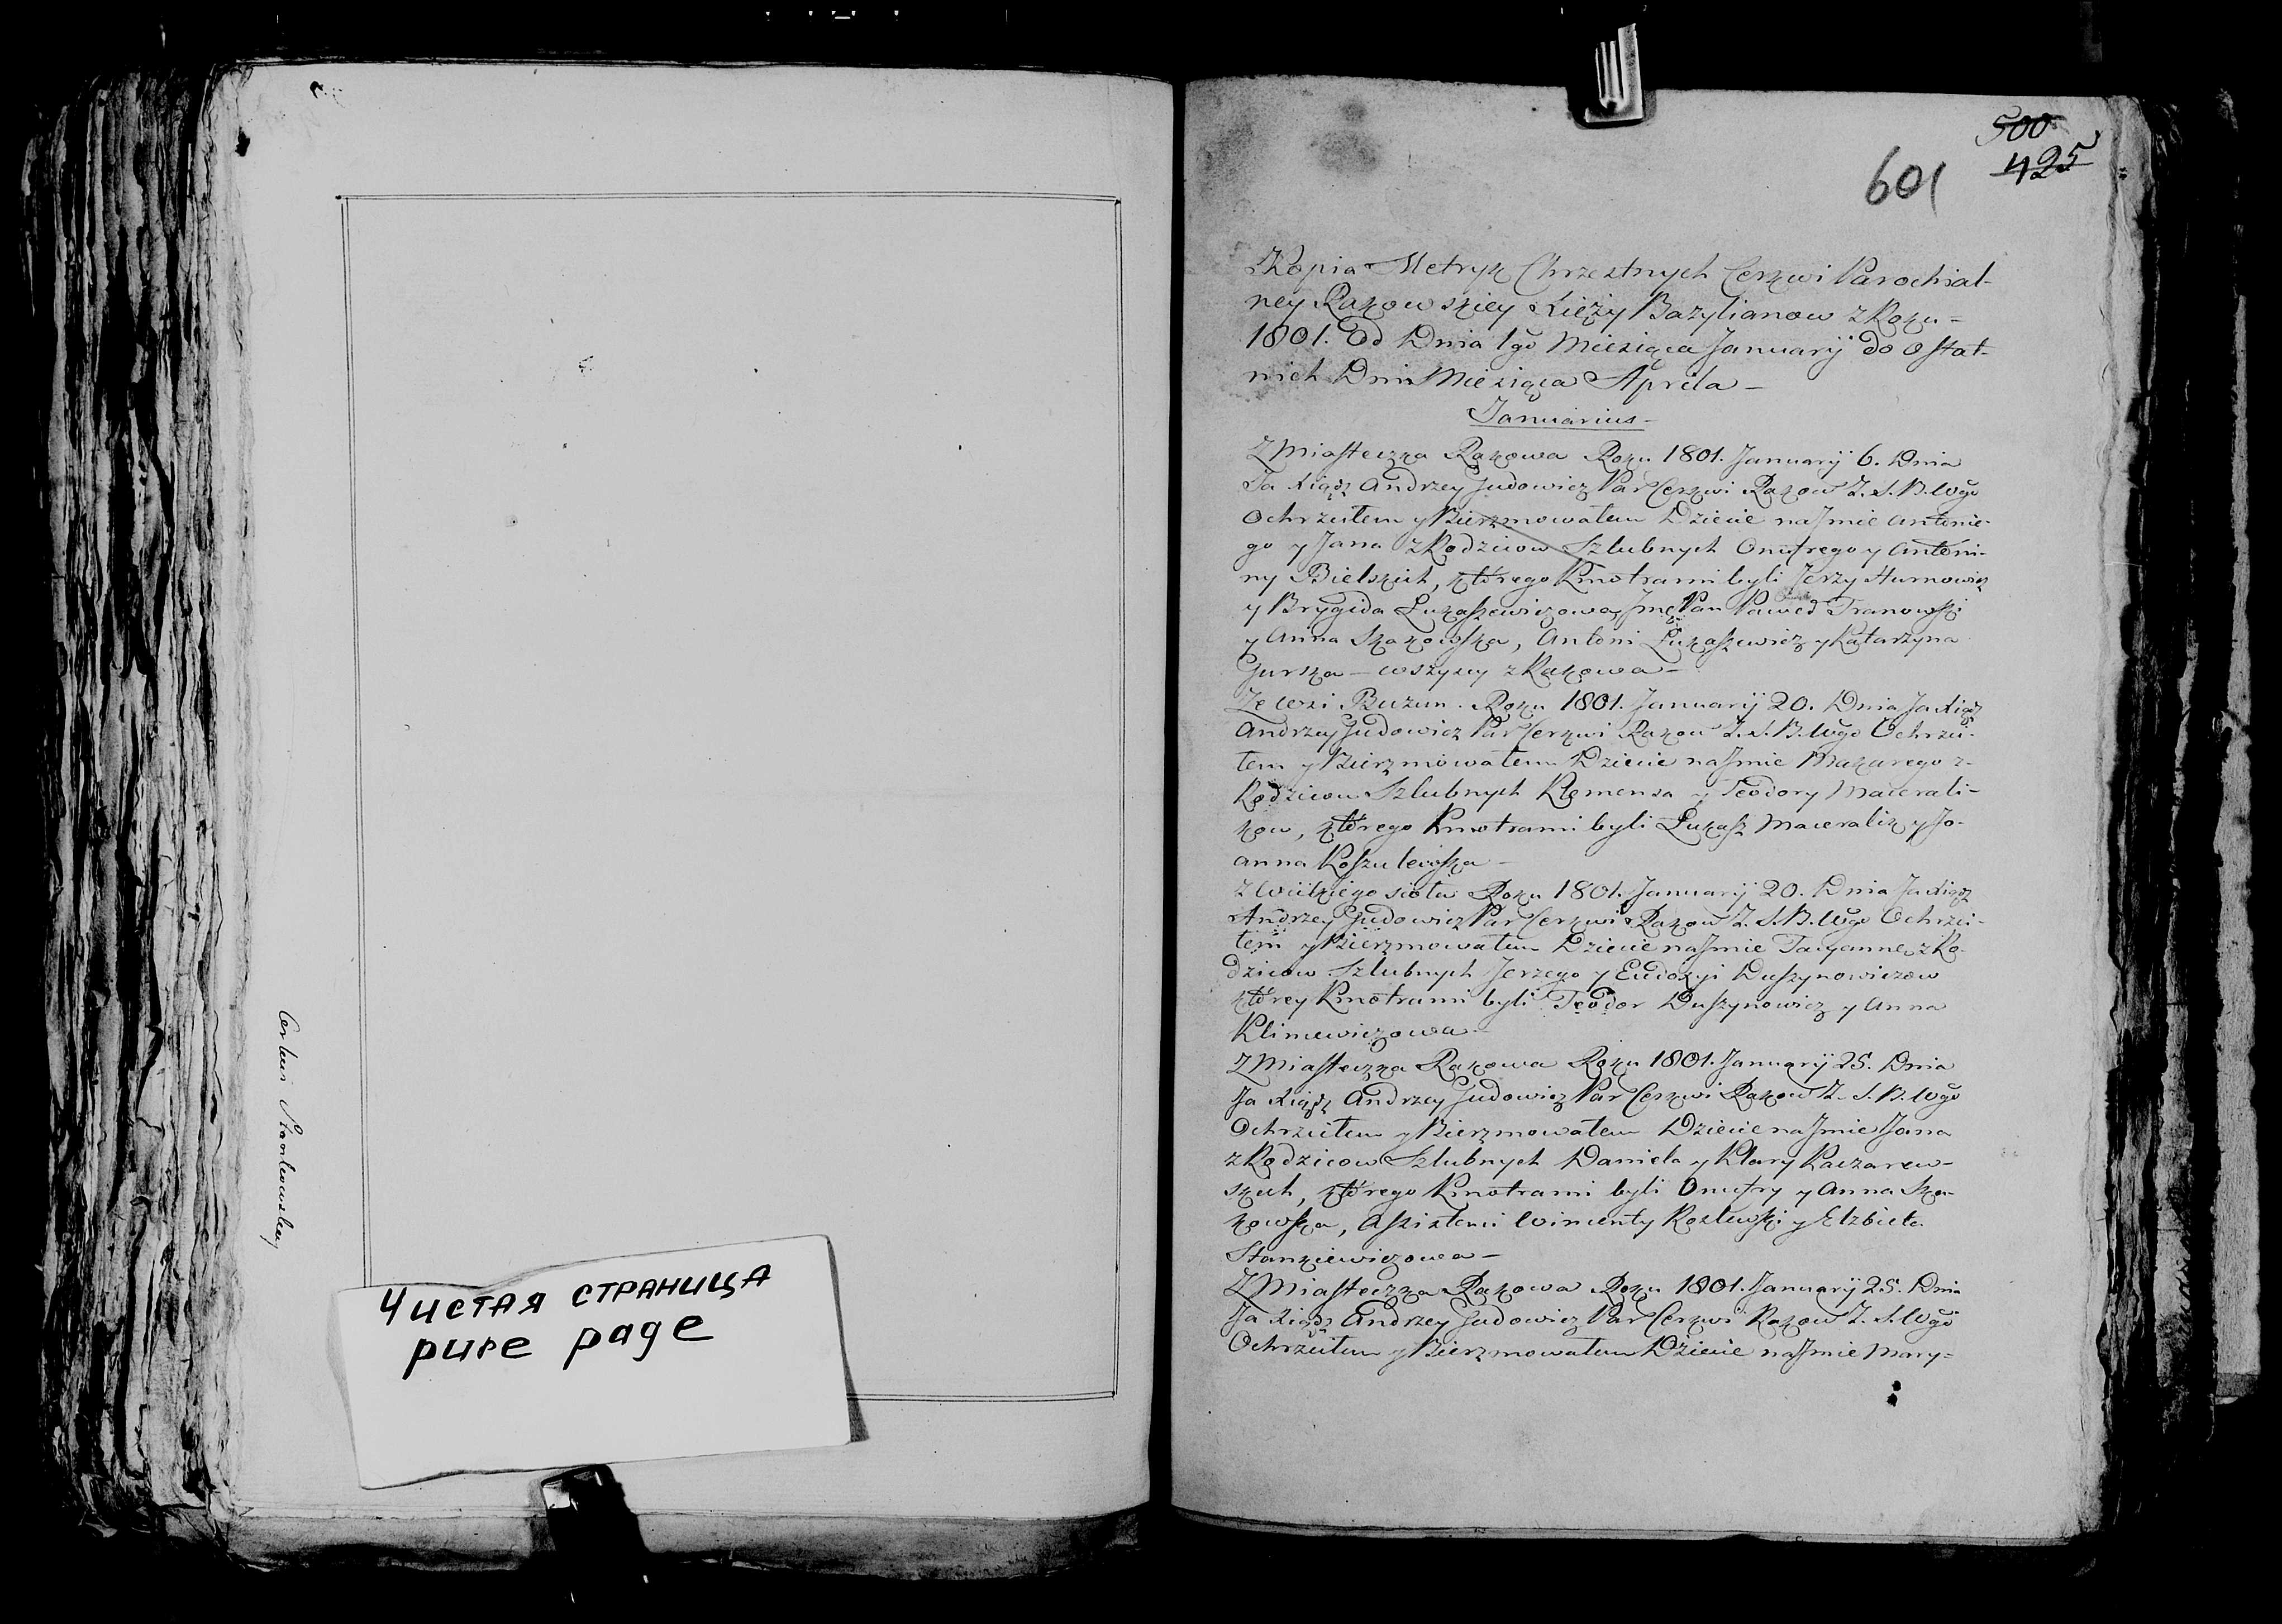 Чистая страница
pure page
500
425
601
Kopia Metryk Chrzestnych Cerkwi Parochial-
ney Rakowskiey Xięży Bazylianow z Roku =
1801. Od Dnia 1go Miesiąca Januarij do Ostat-
nich Dni Miesiąca Aprila –
Januarius –
Z Miasteczka Rakowa Roku 1801. Januarij 6. Dnia
Ja Xiądz Andrzey Judowicz Par Cerkwi Rakow Z. S. B. Wgo
Ochrzciłem y Bierzmowałem Dziecie na Jmie Antonie-
go y Jana z Rodzicow Szlubnych Onufrego y Antoni-
ny Bielskich, ktorego Kmotrami byli Jerzy Hurnowicz
y Brygida Łukaszewiczowa, Jmę Pan Paweł Tranowski
y Anna Skakowska, Antoni Łukaszewicz y Katarzyna
Gurska – wszyscy z Rakowa –
Ze Wsi Buzun. Roku 1801. Januarij 20. Dnia Ja Xiądz
Andrzey Judowicz Par Cerkwi Rakow Z. S. B. Wgo Ochrzci-
łem y Bierzmowałem Dziecie na Jmie Makarego z-
Rodzicow Szlubnych Klemensa y Teodory Macerali-
kow, ktorego Kmotrami byli Łukasz Maceralik y Jo-
anna Koszulewska –
Z Wielkiego sioła Roku 1801. Januarij 20. Dnia Ja Xiądz
Andrzey Judowicz Par Cerkwi Rakow Z. S. B. Wgo Ochrzci-
łem y Bierzmowałem Dziecie na Jmie Tacyanne z Ro-
dzicow Szlubnych Jerzego y Eudoxyi Duszynowiczow
ktorey Kmotrami byli Teodor Duszynowicz y Anna
Klimiewiczowa –
Z Miasteczka Rakowa Roku 1801. Januarij 25. Dnia
Ja Xiądz Andrzey Judowicz Par Cerkwi Rakow Z. S. B. Wgo
Ochrzciłem y Bierzmowałem Dziecie na Jmie Jana
z Rodzicow Szlubnych Daniela y Klary Kaczarew-
skich, ktorego Kmotrami byli Onufry y Anna Ska-
kowska, Assistenci Wincenty Kozłewski y Elzbieta
Stankiewiczowa –
Z Miasteczka Rakowa Roku 1801. Januarij 25. Dnia
Ja Xiądz Andrzey Judowicz Par Cerkwi Rakow Z. S. Wgo
Ochrzciłem y Bierzmowałem Dziecie na Jmie Mary=